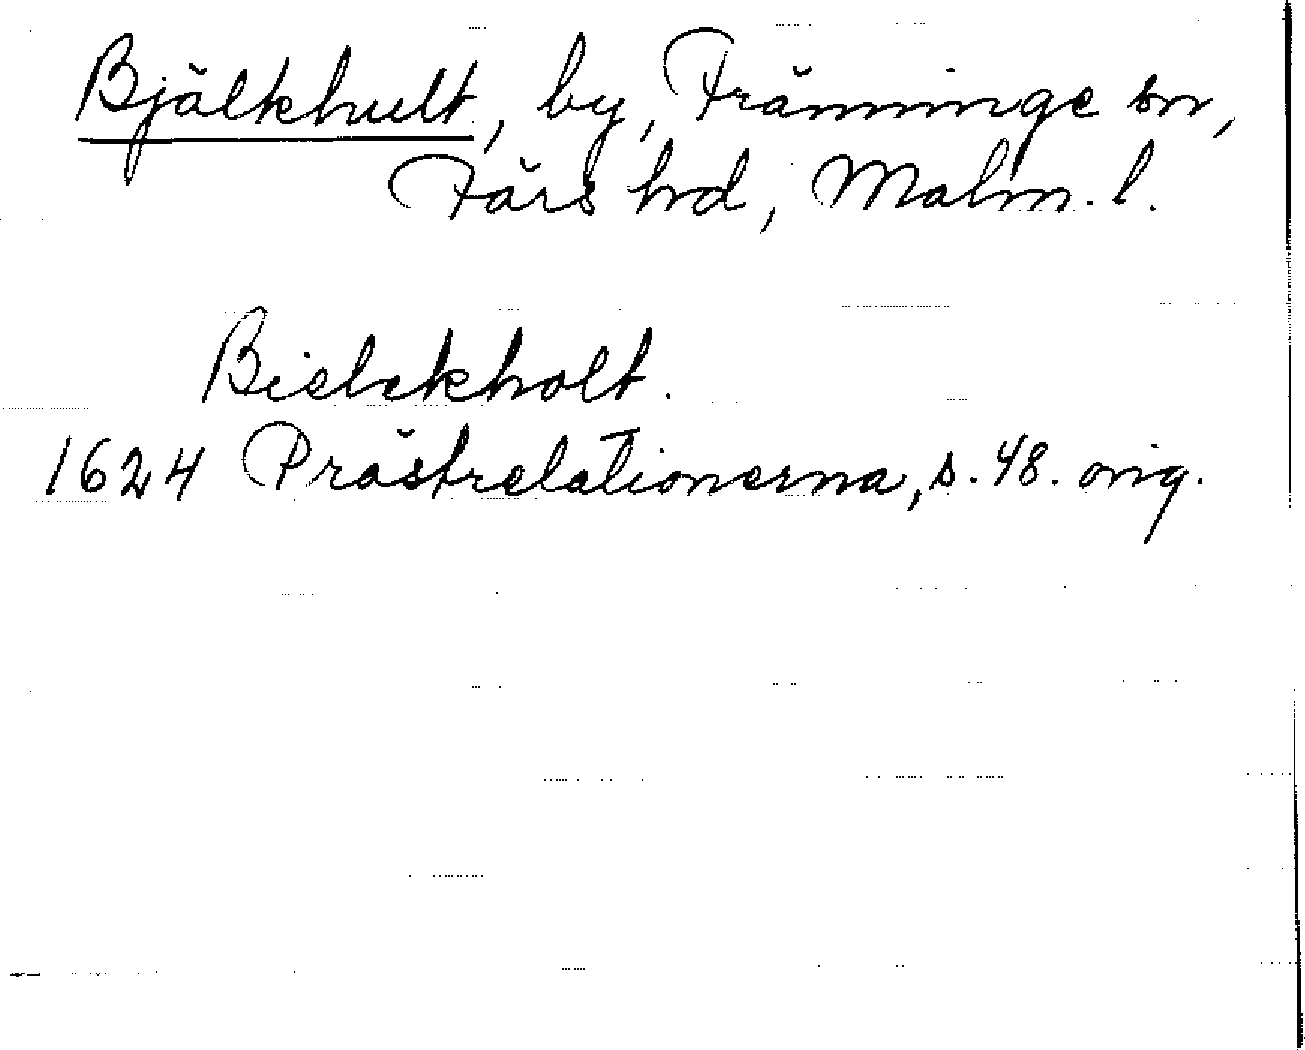 Bjälkhult, by, Fränninge sn,
Färs hd, Malm. l.
Bielckholt.
1624 Prästrelationerna, s. 48. orig.